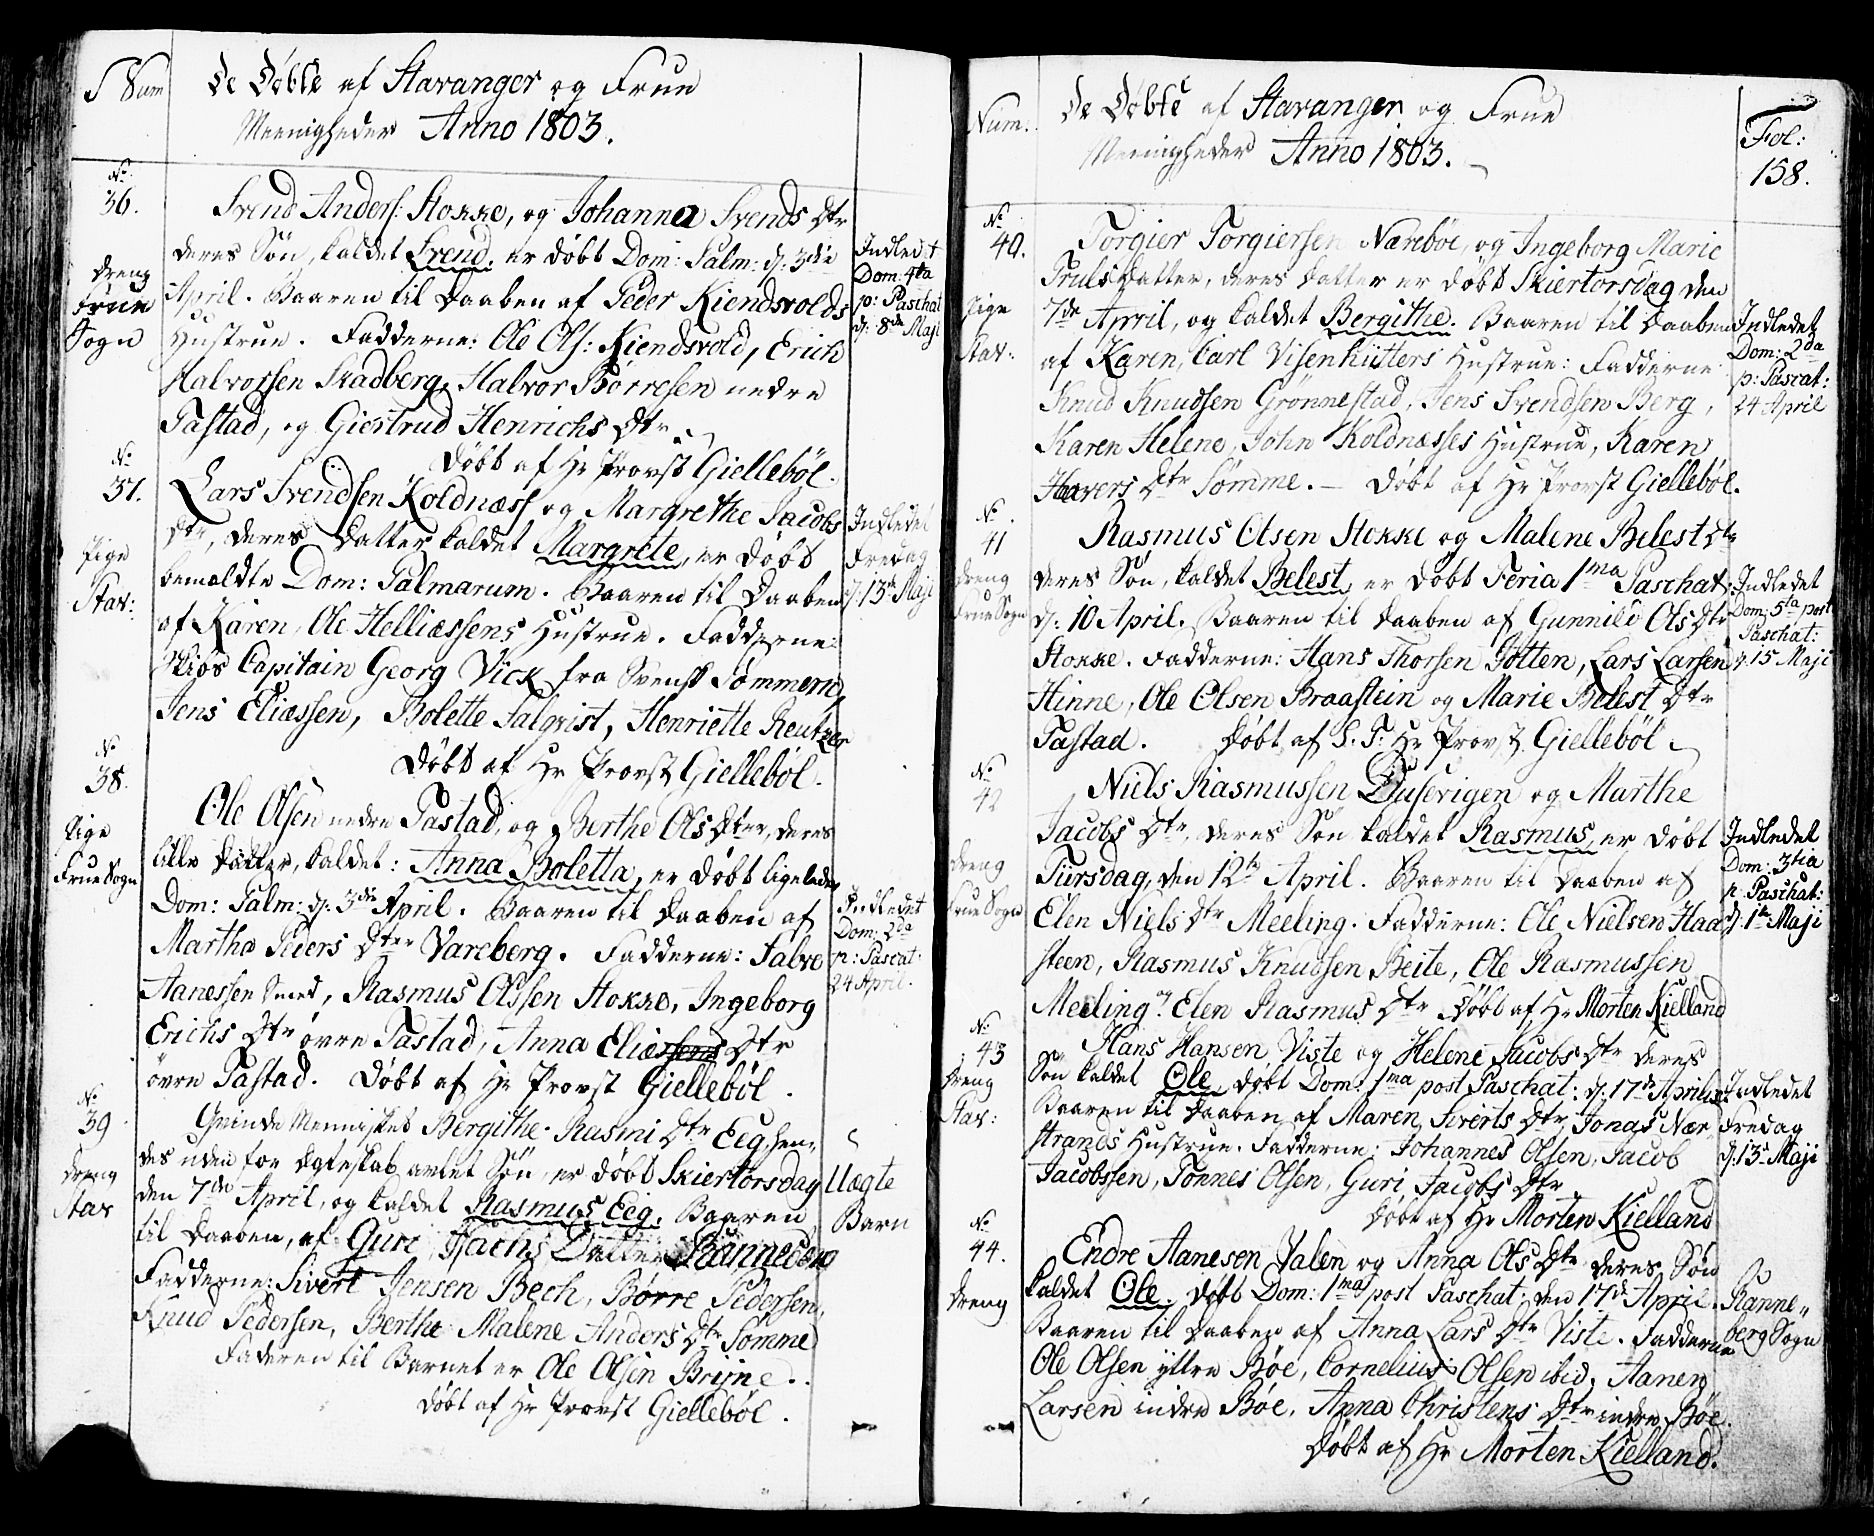 Num
De Døbte af Stavanger og Frue
Meenigheder Anno 1803.
No
36.
Dreng
Frue
Sogn
Svend Anders: Stokke, og Johanna Svends Dtr
deres Søn, kaldet Svend, er døbt Dom: Palm: d: 3die
April. Baaren til Daaben af Peder Kiendsvolds
Hustrue. Fadderne: Ole Ols: Kiendsvold, Erich
Halvorsen Stadberg, Halvor Børresen nedre
Tastad, og Giertrud Henrichs Dtr
Døbt af Hr Provst Giellebøl.
Indledt
Dom: 4ta
p: Paschat
d: 8de Maji
No
37.
Pige
Stav:
Lars Svendsen Koldnæss og Margrethe Jacobs
Dtr, deres Datter kaldet Margrete, er døbt
bemeldte Dom: Palmarum. Baaren til Daaben
af Karen, Ole Helliæssens Hustrue. Fadderne:
Skibs Capitain Georg Vick fra Svensk Pommern,
Jens Eliæssen, Bolette Salqvist, Henriette Reutzer
Døbt af Hr Provst Giellebøl.
Indledet
Fredag
d: 13de Maji
No
38.
Pige
Frue Sogn
Ole Olsen nedre Tastad, og Berthe Ols Dtr, deres
lille Datter, kaldet: Anna Boletta, er døbt ligeledes
Dom: Palm: d: 3die April. Baaren til Daaben af
Martha Peders Dtr Vareberg. Fadderne: Salve
Aanessen Smed, Rasmus Olssen Stokke, Ingeborg
Erichs Dtr øvre Tastad, Anna Eliæssens Dtr
øvre Tastad. Døbt af Hr Provst Giellebøl.
Indledet
Dom: 2da
p: Pascat:
24 April.
No
39
Dreng
Stav
Qvinde Mennisket Bergithe Rasmi Dtr Eeg, hen,,
des uden for Egteskab avlet Søn, er døbt Skiertorsdag
den 7de April, og kaldet Rasmus Eeg. Baaren
til Daaben, af Guri Isachs Datter Ranneberg
Fadderne: Sivert Jensen Bech, Børre Pedersen,
Knud Pedersen, Berthe Malene Anders Dtr Sømme
Faderen til Barnet er Ole Olsen Brime.
Døbt af Hr Provst Giellebøl.
Uægte
Barn
Num:
De Døbte af Stavanger og Frue
Meenigheder Anno 1803.
Fol:
158.
No
40.
Pige
Stav:
Torgier Torgiersen Nærebøe, og Ingeborg Marie
Truls Datter, deres Datter er døbt Skiertorsdag den
7de April, og kaldet Bergithe. Baaren til Daaben
af Karen, Carl Visenhütters Hustrue: Fadderne
Knud Knudsen Grønnestad, Jens Svendsen Berg,
Karen Helene, John Koldnæsses Hustrue, Karen
Havers Dtr Sømme. — Døbt af Hr Provst Giellebøl.
Indledet
Dom: 2da
p: Pascat:
24 April
No
41
Dreng
Frue Sogn
Rasmus Olsen Stokke og Malene Belest Dtr
deres Søn, kaldet Belest, er døbt Feria 1ma Paschat:
d: 10 April. Baaren til Daaben af Gunnild Ols Dtr
Stokke. Fadderne: Hans Thorsen Gotten, Lars Larsen
Hinne, Ole Olsen Braastein og Marie Belest Dtr
Tastad. Døbt af S. T. Hr Provst Giellebøl
Indledet
Dom: 5ta post
Paschat:
d: 15 Maji
No
42
Dreng
Frue Sogn
Niels Rasmussen Dusevigen og Marthe
Jacobs Dtr, deres Søn kaldet Rasmus, er døbt
Tiirsdag, den 12te April. Baaren til Daaben af
Elen Niels Dtr Meeling. Fadderne: Ole Nielsen Haa
steen, Rasmus Knudsen Beite, Ole Rasmussen
Meeling og Elen Rasmus Dtr Døbt af Hr Morten Kielland
Indledet
Dom: 3tia
p: Paschat:
d: 1te Maji
No
43
Dreng
Stav:
Hans Hansen Viste og Helene Jacobs Dtr deres
Søn kaldet Ole, døbt Dom: 1ma post Paschat: d: 17de Aprilis
Baaren til Daaben af Maren Siverts Dtr, Jonas Nær
strands Hustrue. Fadderne: Johannes Olsen, Jacob
Jacobssen, Tønnes Olsen, Guri Jacobs Dtr
Døbt af Hr Morten Kielland
Indledet
Fredag
d: 13de Maji
No
44.
Dreng
Endre Aanesen Valen og Anna Ols Dtr deres Søn
kaldet Ole. Døbt Dom: 1ma post Paschat: den 17de April.
Baaren til Daaben af Anna Lars Dtr Viste. Fadderne
Ole Olsen yttre Bøe, Cornelius Olsen ibid, Aanen
Larsen indre Bøe, Anna Christens Dtr indre Bøe.
Døbt af Hr Morten Kielland.
Ranne,,
berg Sogn